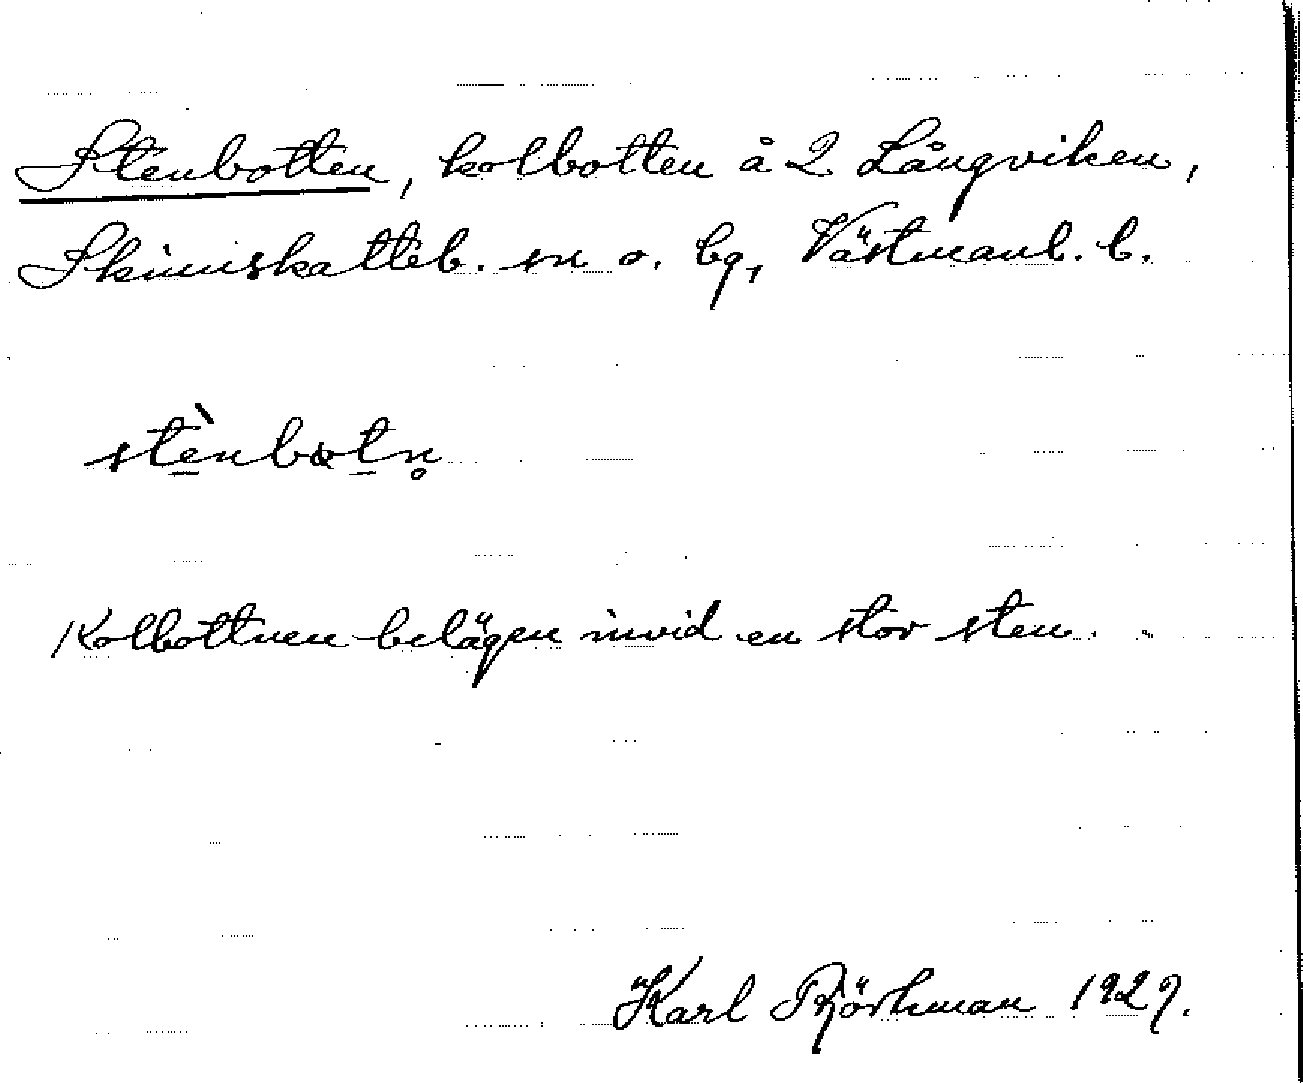 Stenbotten, kolbotten å 2 Långviken,
Skinnskatteb. sn o. bg, Västmanl. l.
stènbotn̥
Kolbottnen belägen invid en stor sten.
Karl Björkman 1927.